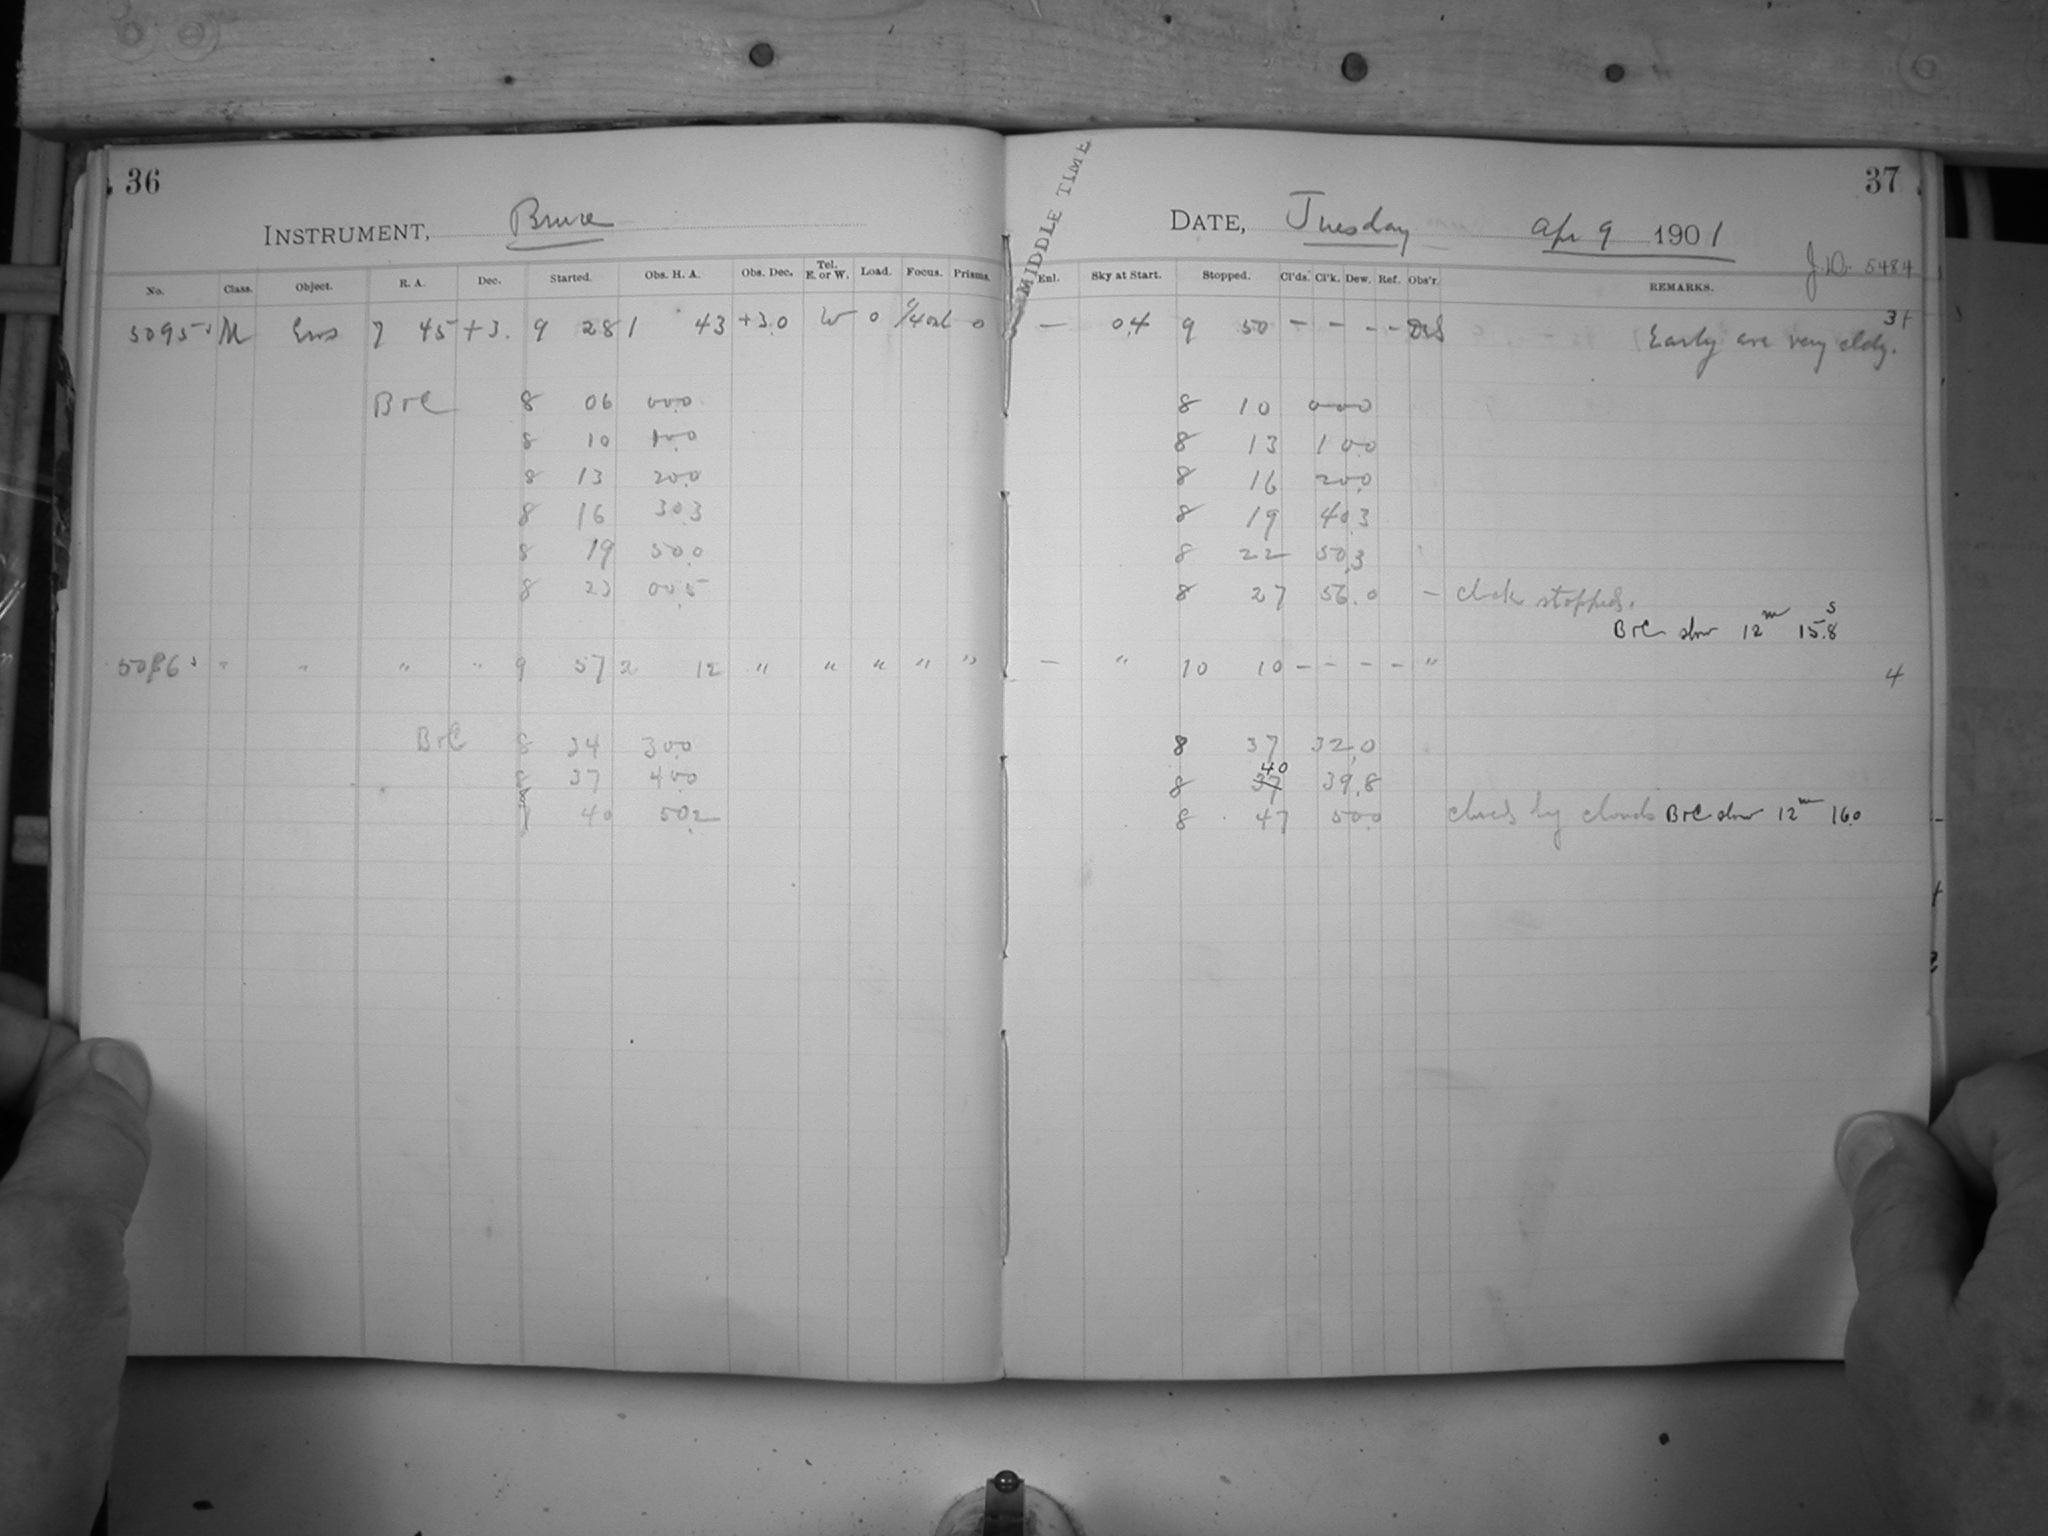 36
INSTRUMENT, Bruce
No. Class. Object. R. A. Dec. Started. Obs. H. A. Obs. Dec. Tel. E. or W. Load. Focus. Prisms.
5095 M Eros 7 45 +3. 9 28 1 43 +3.0 W 0 0
BrC 8 06 00.0
8 10 10.0
8 13 20.0
8 16 30.3
8 19 50.0
8 23 00.5
" " " " 9 57 2 12 " " " " "
BrC 8 34 30.0
8 37 40.0
8 40 50.2
MIDDLE TIME
37
DATE, Tuesday Apr 9 1901
J.D. 5484
Enl. Sky at Start. Stopped. Cl'ds. Cl'k. Dew. Ref. Obs'r. REMARKS.
— 0.4 9 50 – – – – Early are very cldy. 31
8 10 00.0
8 13 10.0
8 16 20.0
8 19 40.3
8 22 50.3
8 27 56.0 – clock stopped.
BrC slow 12m 15.8s
— " 10 10 – – – – " 4
8 37 32.0
40
8 37 39.8
8 47 50.0 closed by clouds BrC slow 12m 16.0